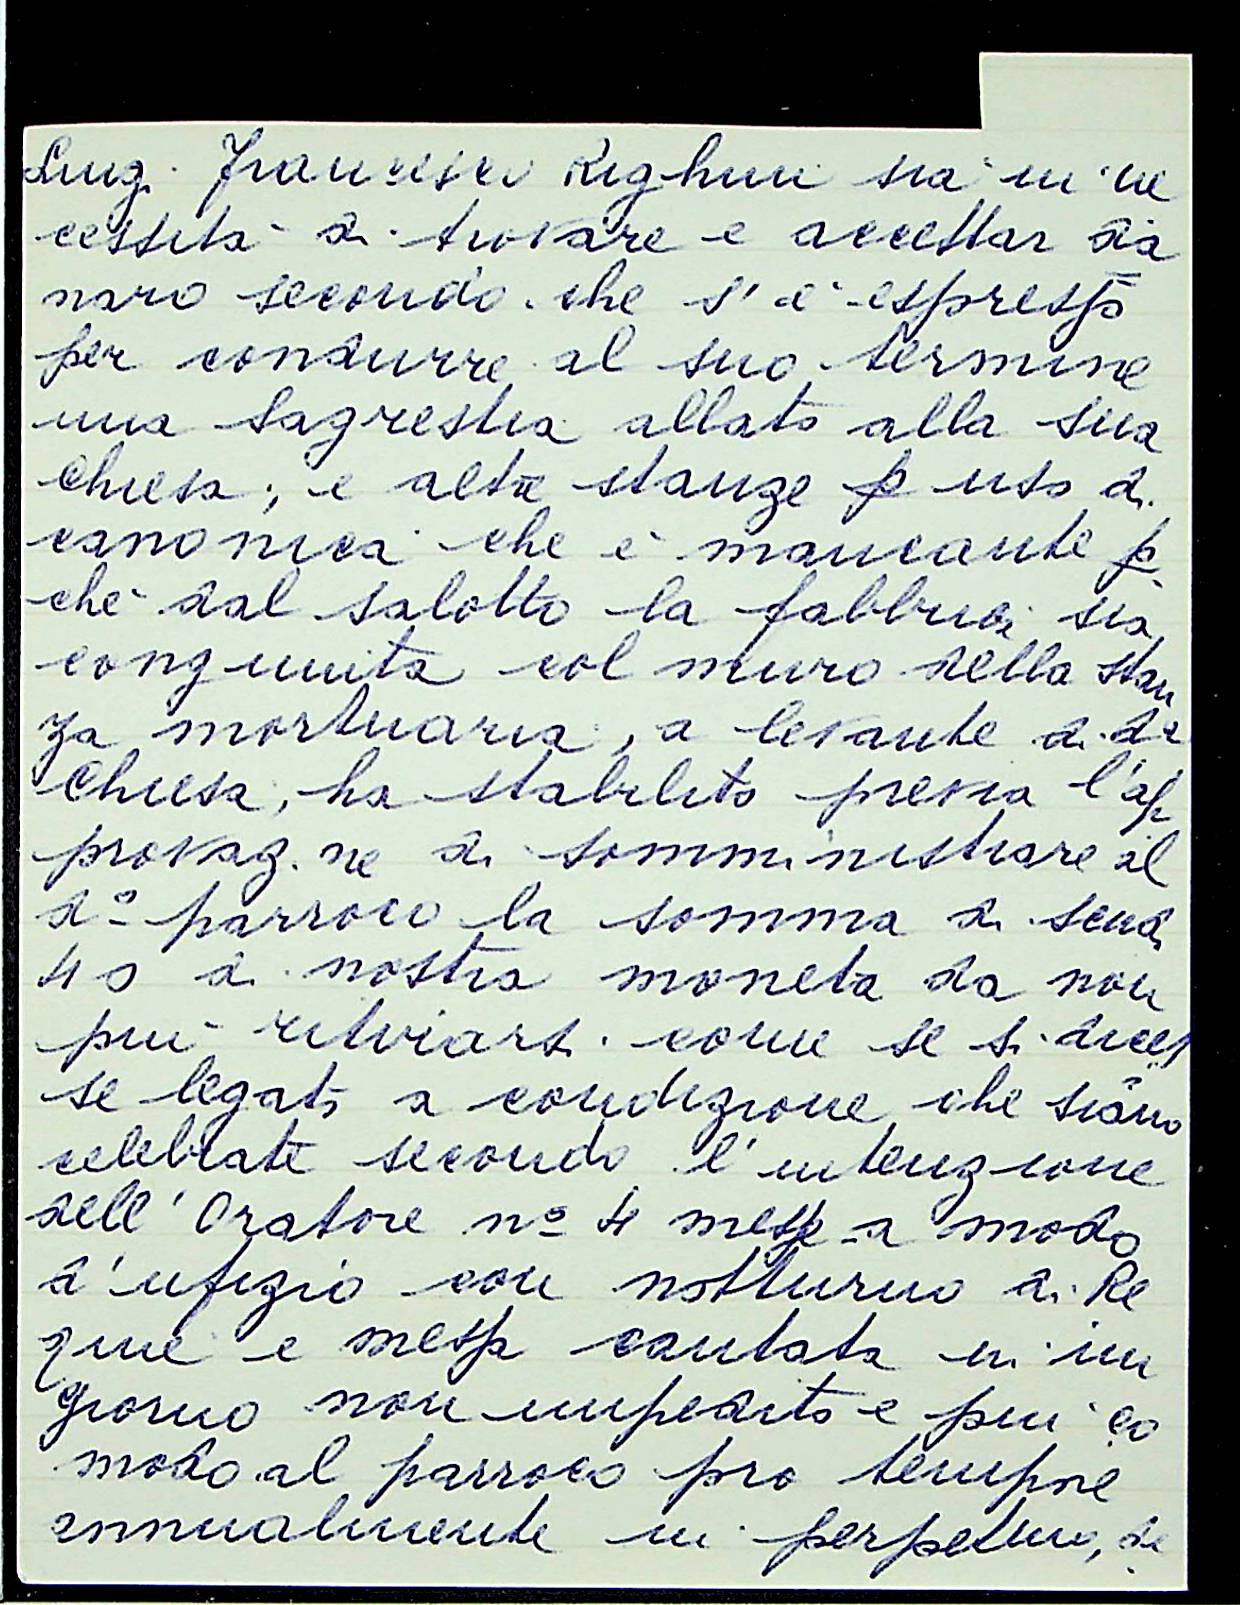 Luig. Francesco Righini sia in ne
cessità di trovare e accettar dà
naro secondo che s'è espresso
per condurre al suo termine
una sagrestia allato alla sua
Chiesa; e altre stanze p uso di
canonica che è mancante p
chè dal salotto la fabbrica sia
congiunta col muro della stan
za mortuaria, a levante di da
Chiesa, ha stabilito previa l'ap
provaz.ne di somministrare al
do parroco la somma di scudi
40 di nostra moneta da non
più ritirarsi come se si dices
se legato a condizione che siano
celebrate secondo l'intenzione
dell'Oratore no 4 messe a modo
d'ufizio con notturno di Re
quie e messa cantata in un
giorno non impedito e più co
modo al parroco pro tempore
annualmente in perpetuo, di